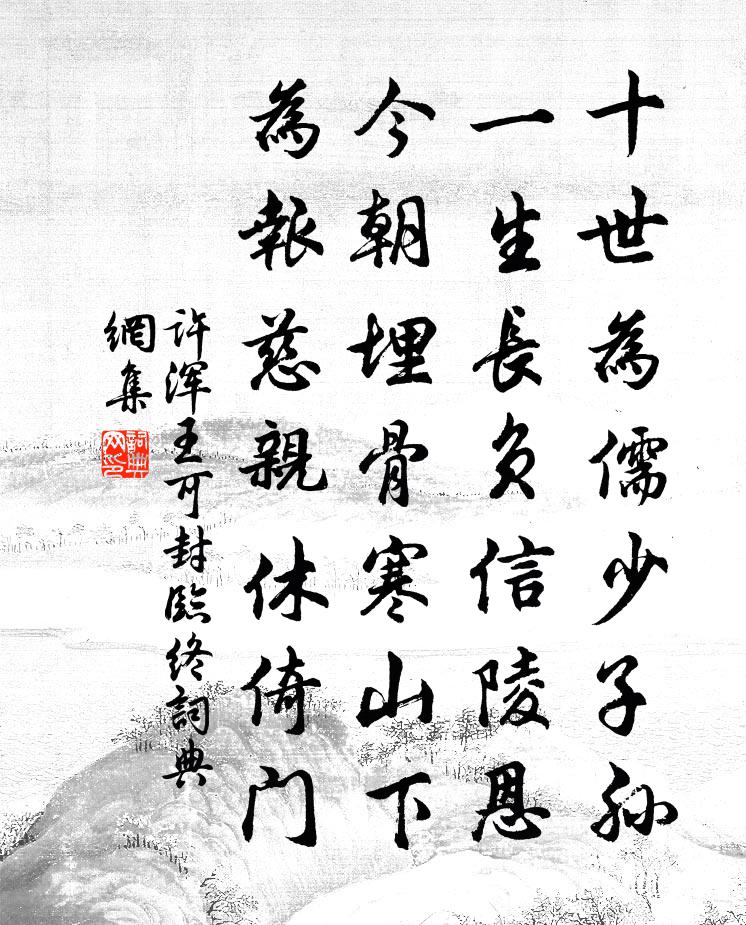 十世為儒少子孫
一生長負信陵恩
今朝埋骨寒山下
為報慈親休倚門
许渾王可封臨終詞典
網集
詞典
网印